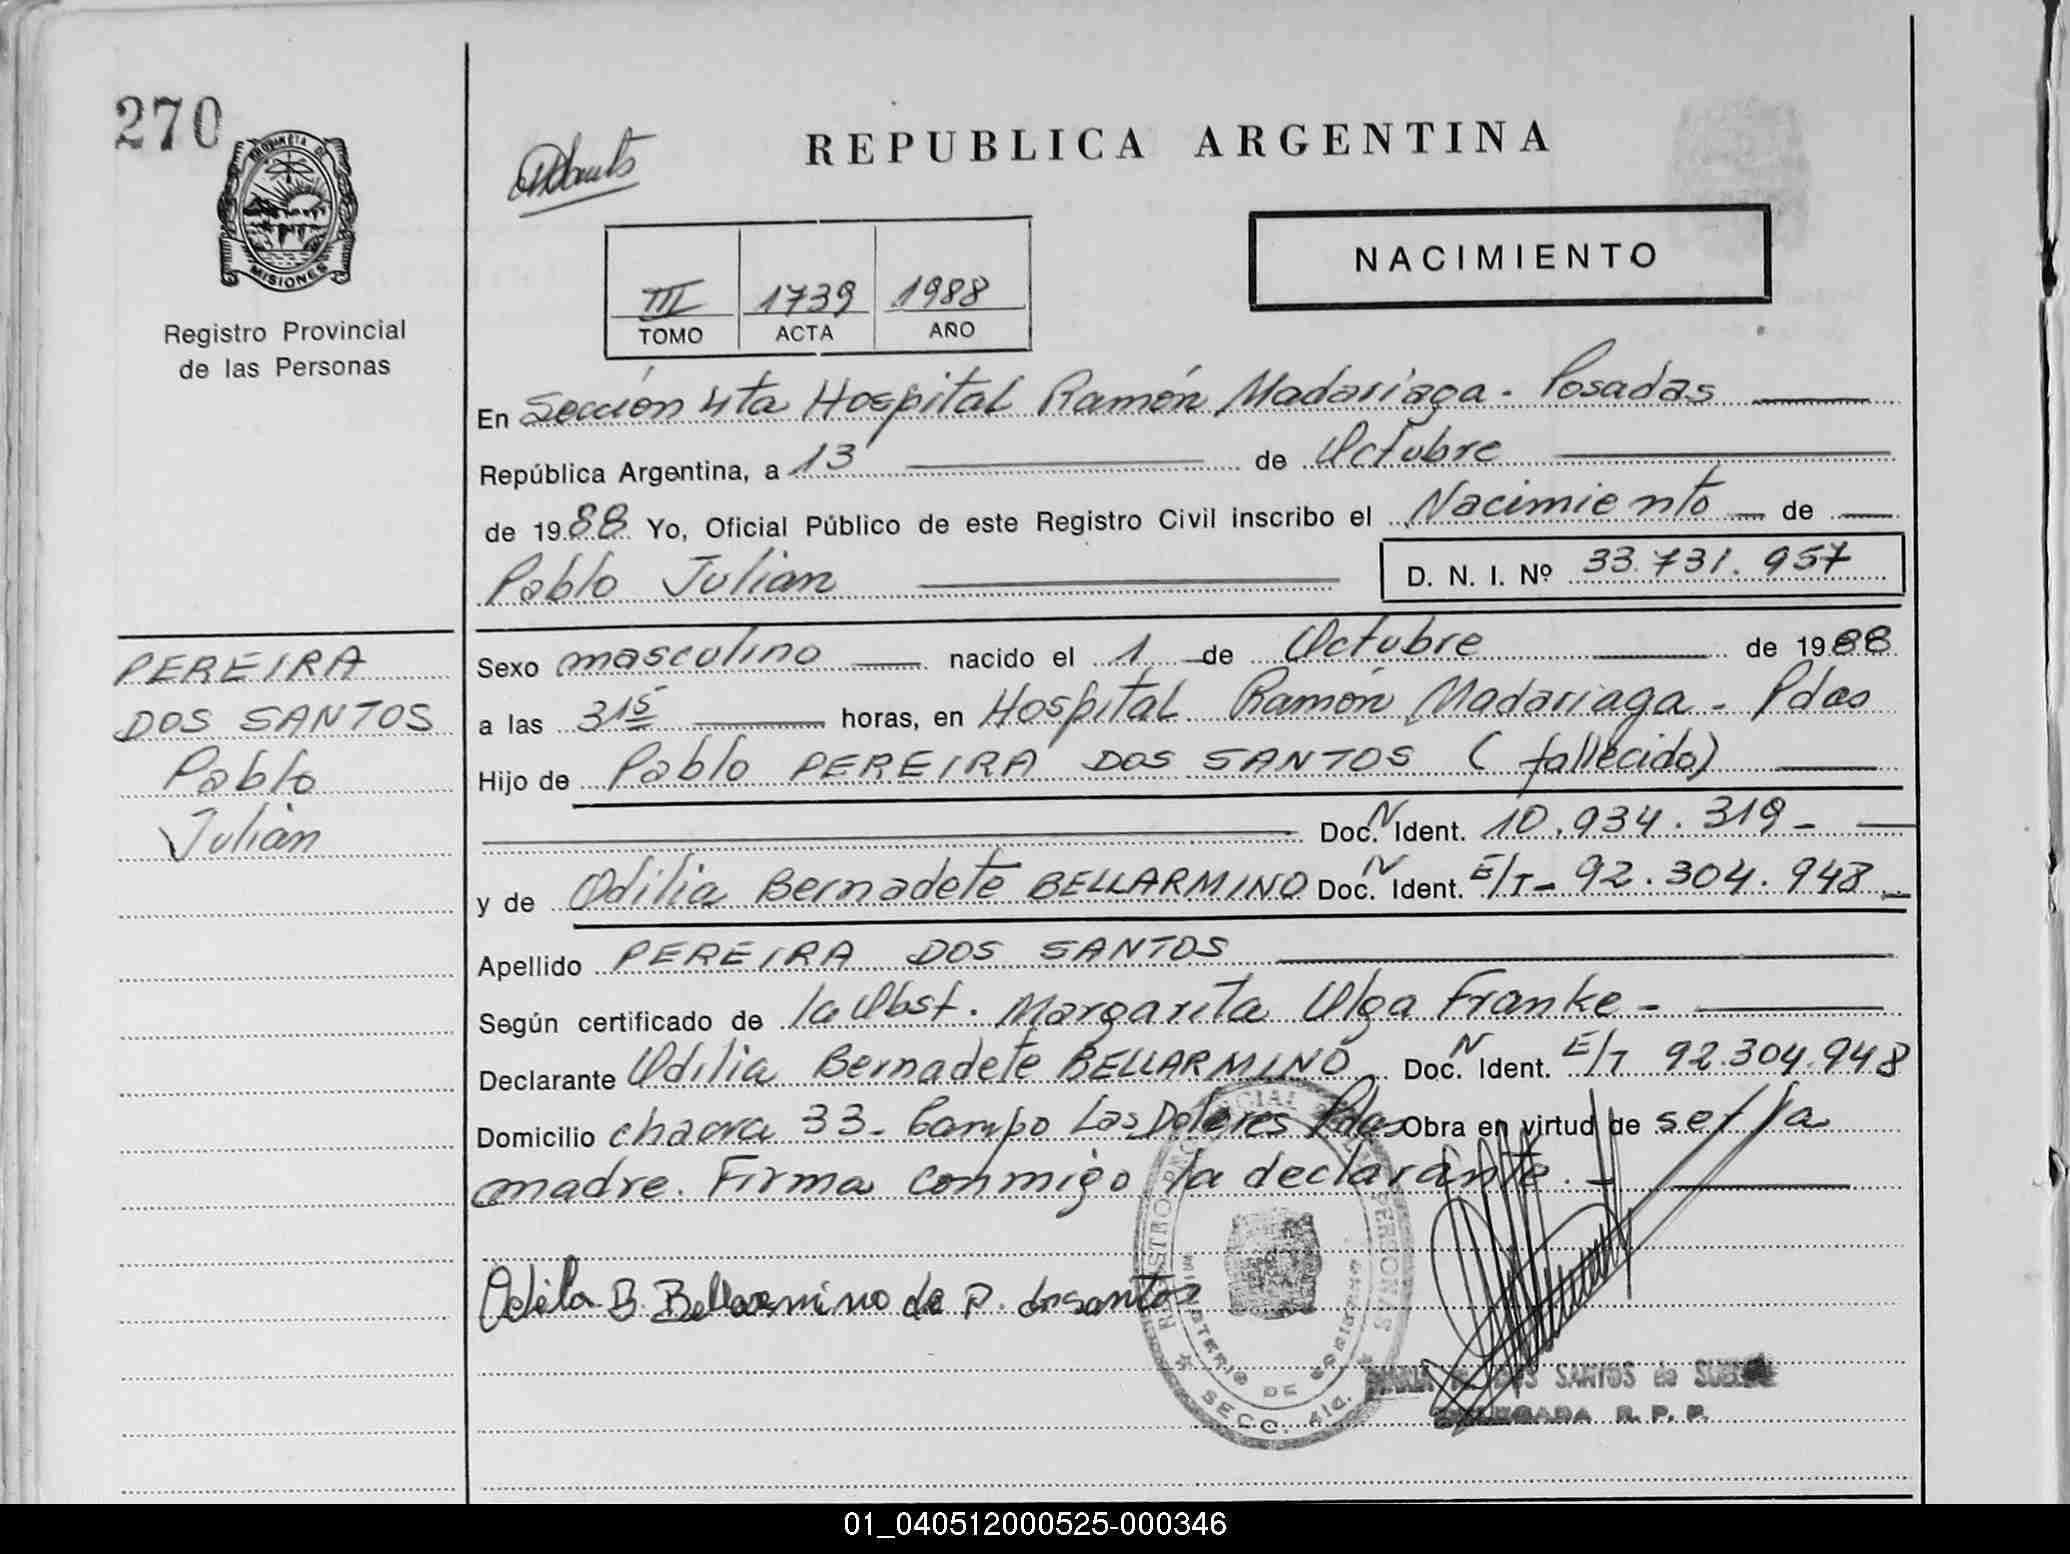 270
PROVINCIA DE
MISIONES
Registro Provincial
de las Personas
REPUBLICA ARGENTINA
NACIMIENTO
III 1739 1988
TOMO ACTA AÑO
En Sección 4ta Hospital Ramón Madariaga - Posadas
República Argentina, a 13 de Octubre
de 1988 Yo, Oficial Público de este Registro Civil inscribo el Nacimiento de
Pablo Julian D. N. I. Nº 33.731.957
PEREIRA
DOS SANTOS
Pablo
Julián
Sexo masculino nacido el 1 de Octubre de 1988
a las 3 15 horas, en Hospital Ramón Madariaga - Pdas
Hijo de Pablo PEREIRA DOS SANTOS (fallecido)
Doc. N Ident. 10.934.319 -
y de Odilia Bernadete BELLARMINO Doc. N Ident. E/T - 92.304.948 -
Apellido PEREIRA DOS SANTOS
Según certificado de la Obst. Margarita Olga Franke -
Declarante Odilia Bernadete BELLARMINO Doc. N Ident. E/T 92.304.948
Domicilio chacra 33 - Campo Las Dolores Pdas Obra en virtud de ser la
madre. Firma conmigo la declarante. -
Odila B. Bellarmino de P. dos santos
REGISTRO PROVINCIAL PERSONAS
MINISTERIO DE GOBIERNO
SECC. 4ta.
DOS SANTOS de
DELEGADA R. P. P.
01_040512000525-000346